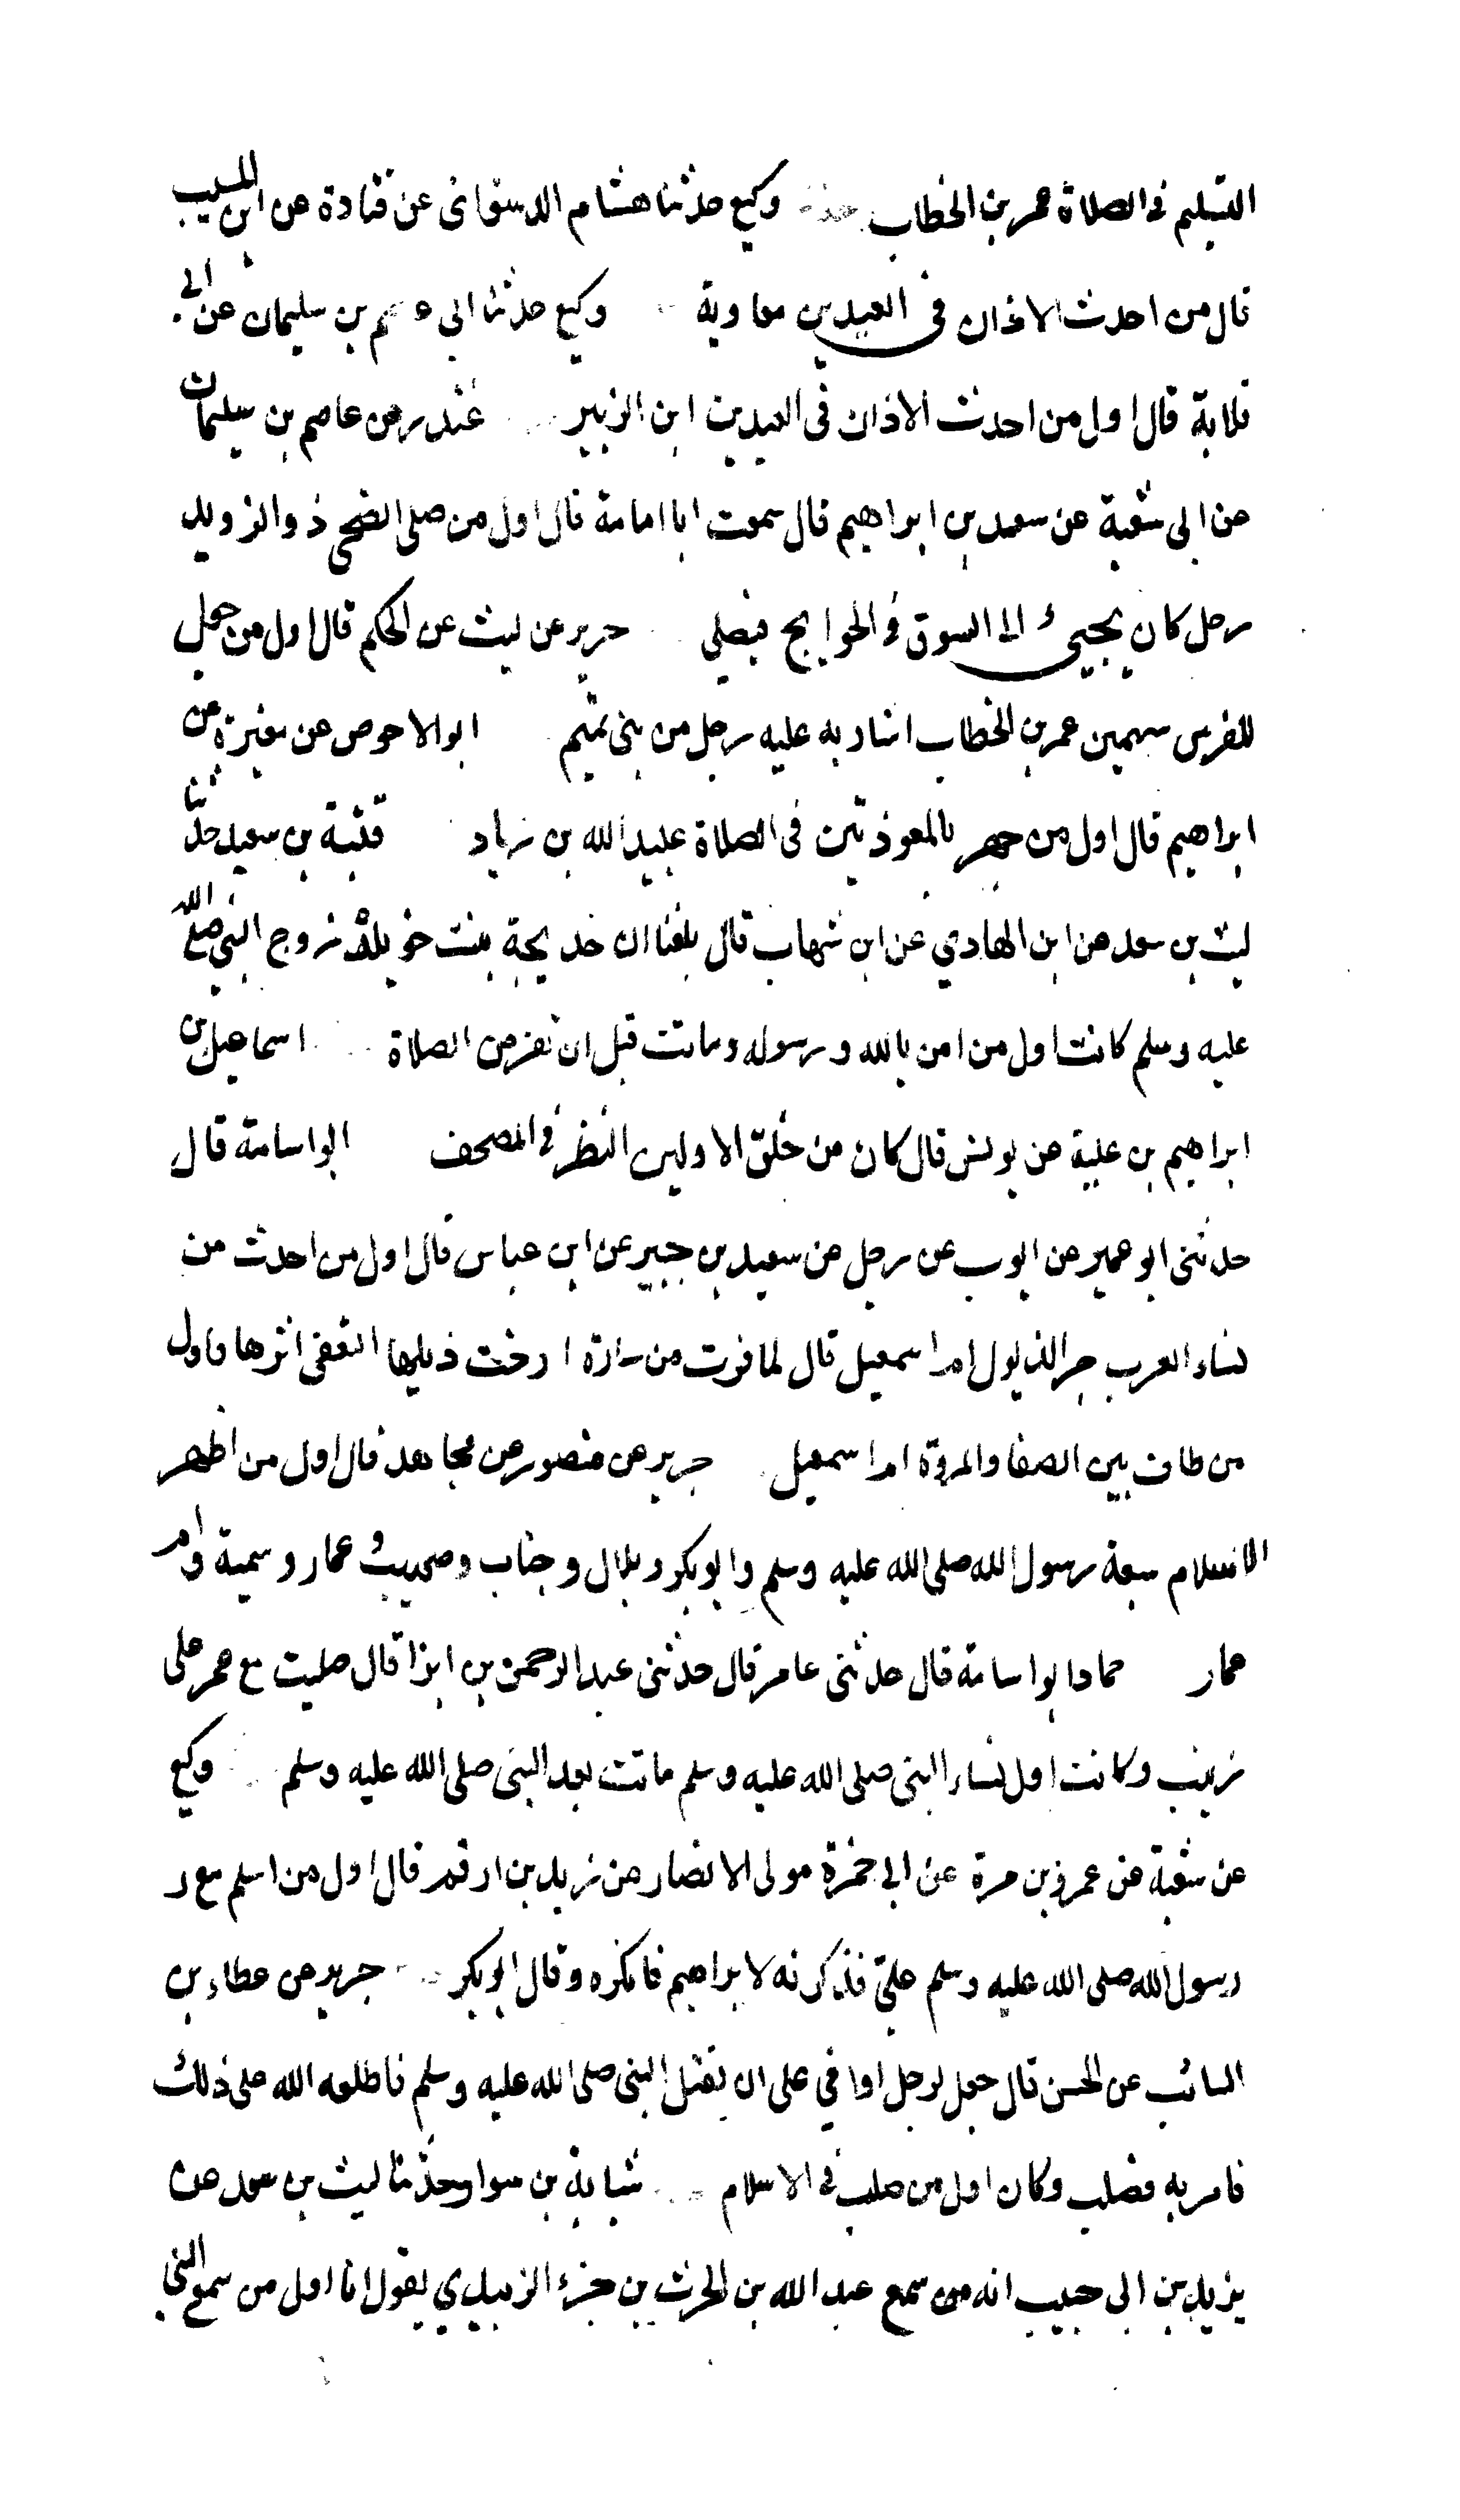 التسليم فى الصلاة عمر بن الخطاب وكيع حدثنا هشام الدستوائى عن قتادة عن ابن المسيب
قال من احدث الاذان فى العيدين معاوية وكيع حدثنا ابي عن بن سليمان عن ابي
قلابة قال اول من احدث الاذان فى العيدين ابن الزبير غندر عن عاصم بن سليمان
عن ابى شعبة عن سعد بن ابراهيم قال سمعت ابا امامة قال اول من صلى الضحى ذو الزويد
رجل كان يجيئ الى السوق فى الحوايج فيصلى جرير عن ليث عن الحكم قال اول من جعل
للفرس سهمين عمر بن الخطاب اشار به عليه رجل من بنى تميم ابو الاحوص عن مغيرة عن
ابراهيم قال اول من جهر بالمعوذتين فى الصلاة عبيد الله بن زياد قتيبة بن سعيد حدثنا
ليث بن سعد عن ابن الهادي عن ابن شهاب قال بلغنا ان خديجة بنت خويلد زوج النبى صلى الله
عليه وسلم كانت اول من امن بالله ورسوله وماتت قبل ان تفرض الصلاة اسماعيل بن
ابراهيم بن علية عن يونس قال كان من خلق الاولين النظر فى المصحف ابو اسامة قال
حدثنى ابو عمير عن ايوب عن رجل عن سعيد بن جبير عن ابن عباس قال اول من احدث من
نساء العرب جر الذيول ام اسمعيل قال لما فرت من سارة ارخت ذيلها لتعفى اثرها واول
من طاف بين الصفا والمروة ام اسمعيل جرير عن منصور عن مجاهد قال اول من اظهر
الاسلام سبعة رسول الله صلى الله عليه وسلم وابو بكر وبلال وخباب وصهيب وعمار وسمية وام
عمار حماد ابو اسامة قال حدثنى عامر قال حدثنى عبد الرحمن بن ابزا قال صليت مع عمر على
زينب وكانت اول نساء النبى صلى الله عليه وسلم ماتت بعد النبى صلى الله عليه وسلم وكيع
عن شعبة عن عمرو بن مرة عن ابى حمزة مولى الانصار عن زيد بن ارقم قال اول من اسلم مع ر
رسول الله صلى الله عليه وسلم على فذكرته لابراهيم فانكره وقال ابو بكر جرير عن عطاء بن
السائب عن الحسن قال جعل لرجل اواقي على ان يقتل النبى صلى الله عليه وسلم فاطلعه الله على ذلك
فامر به فصلب وكان اول من صلب فى الاسلام شبابة بن سوار حدثنا ليث بن سعد عن
يزيد بن ابى حبيب انه من سمع عبد الله بن الحرث بن جزء الزبيدي يقول انا اول من سمع النبى